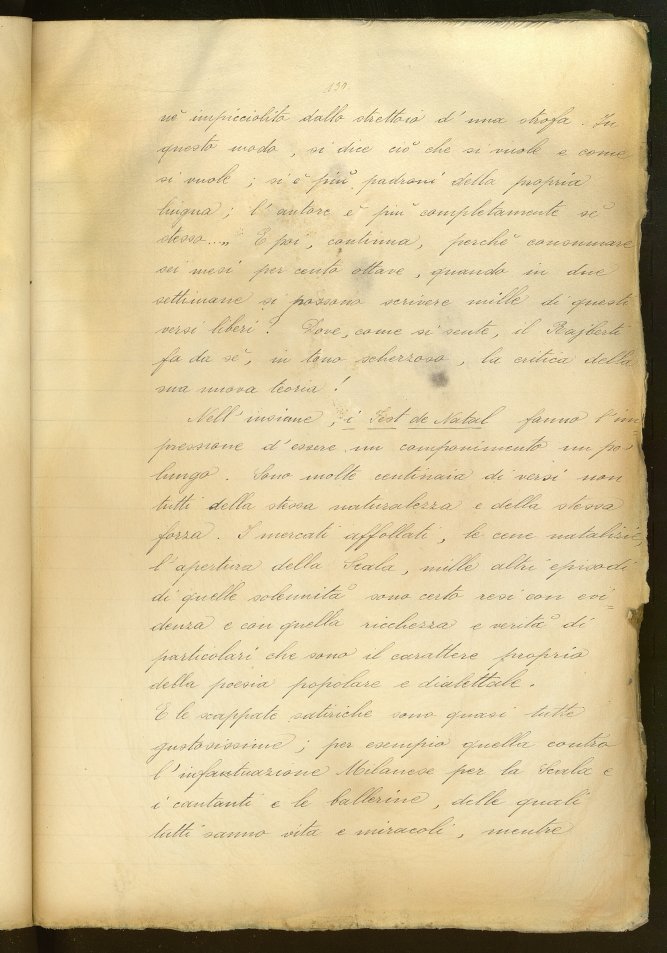 né impicciolito dallo strettoio d'una strofa. In
questo modo, si dice ciò che si vuole e come
si vuole; si è più padroni della propria
lingua; l'autore è più completamente sè
stesso..." E poi, continua, perchè consumare
sei mesi per cento ottave, quando in due
settimane si possono scrivere mille di questi
versi liberi? Dove, come si sente, il Rajberti
fa da sè, in tono scherzoso, la critica della
sua nuova teoria!
Nell'insieme, i Fest de Natal fanno l'im
pressione d'essere un componimento un po'
lungo. Sono molte centinaia di versi non
tutti della stessa naturalezza e della stessa
forza. I mercati affollati, le cene natalizie,
l'apertura della Scala, mille altri episodi
di quelle solennità sono certo resi con evi-
denza e con quella ricchezza e verità di
particolari che sono il carattere proprio
della poesia popolare e dialettale.
E le scappate satiriche sono quasi tutte
gustosissime; per esempio quella contro
l'infatuazione Milanese per la Scala e
i cantanti e le ballerine, delle quali
tutti sanno vita e miracoli, mentre